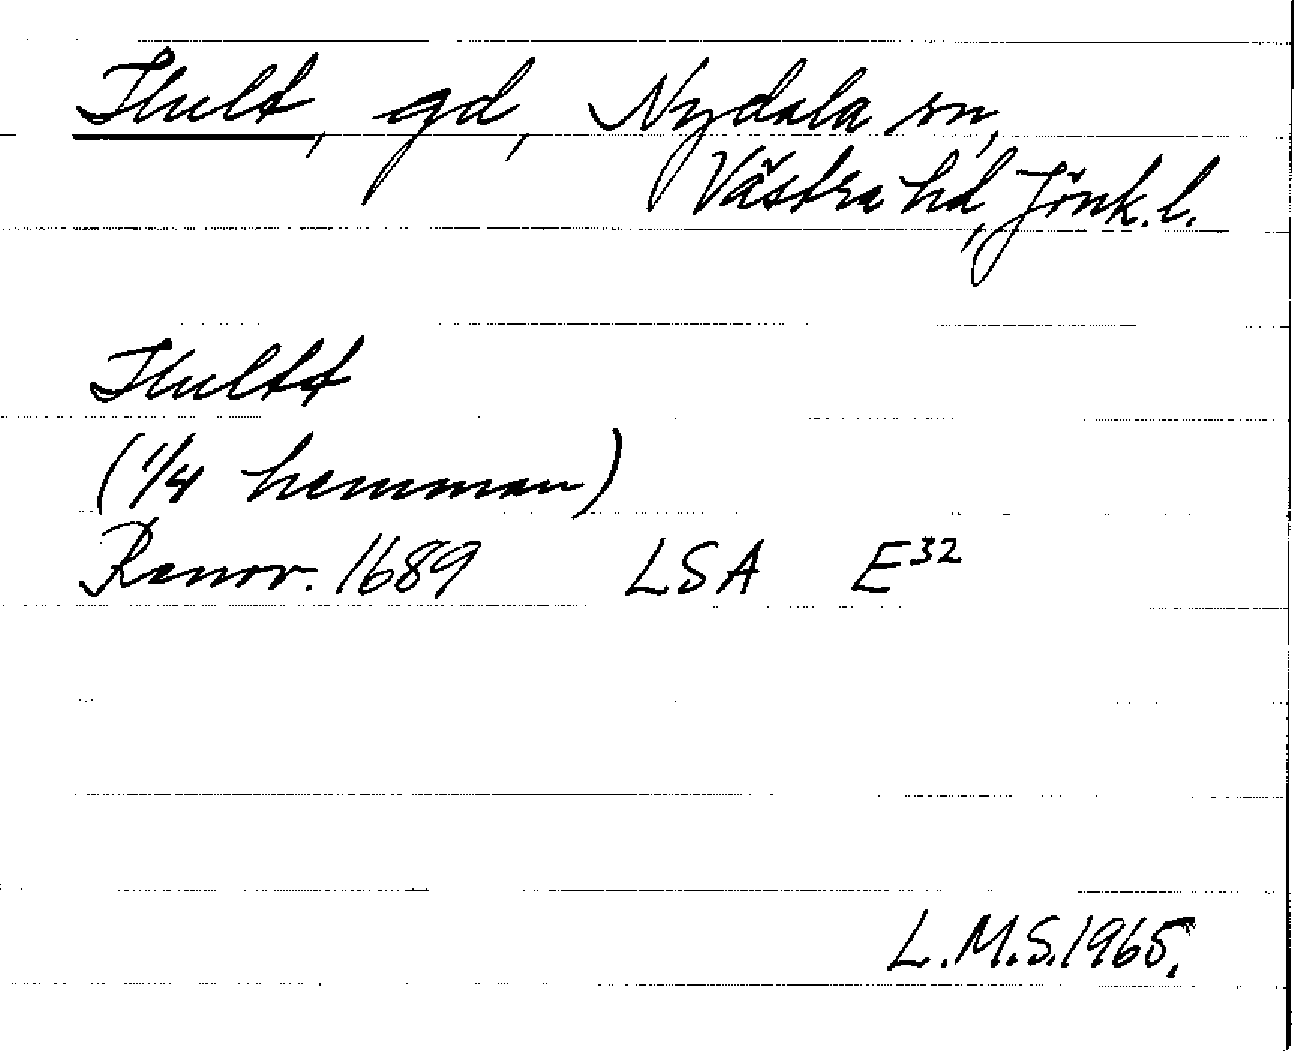 Hult, gd, Nydala sn,
Västra hd, Jönk. l.
Hultt
(1/4 hemman)
Renov. 1689 LSA E32
L.M.S. 1965.